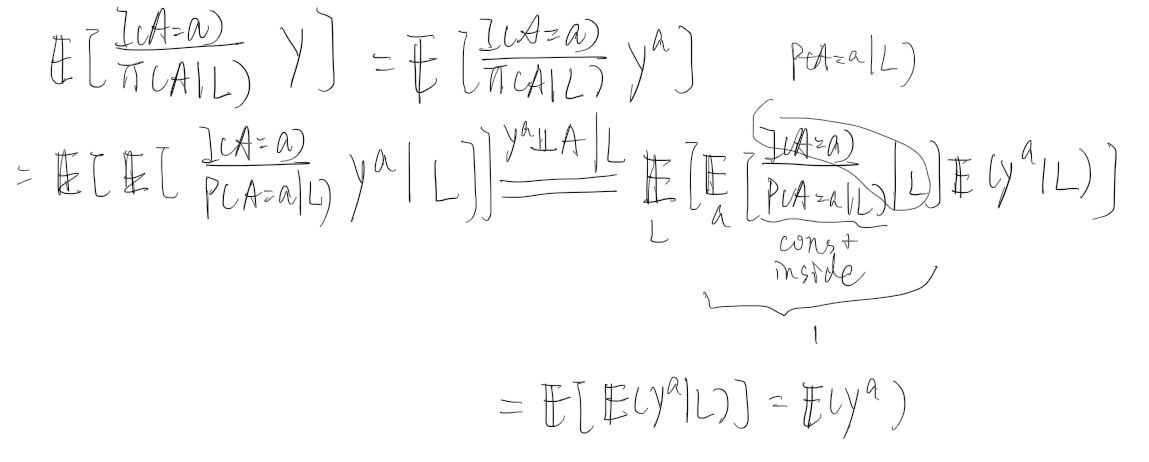 𝔼[ I(A=a) / π(A|L) Y ] = 𝔼[ I(A=a) / π(A|L) Y^a ] P(A=a|L)
= 𝔼[ 𝔼[ I(A=a) / P(A=a|L) Y^a | L ] ] =(Y^a ⫫ A | L)= 𝔼_L [ 𝔼_a [ I(A=a) / P(A=a|L) | L ] 𝔼(Y^a|L) ]
const
inside
1
= 𝔼[ 𝔼(Y^a|L) ] = 𝔼(Y^a)